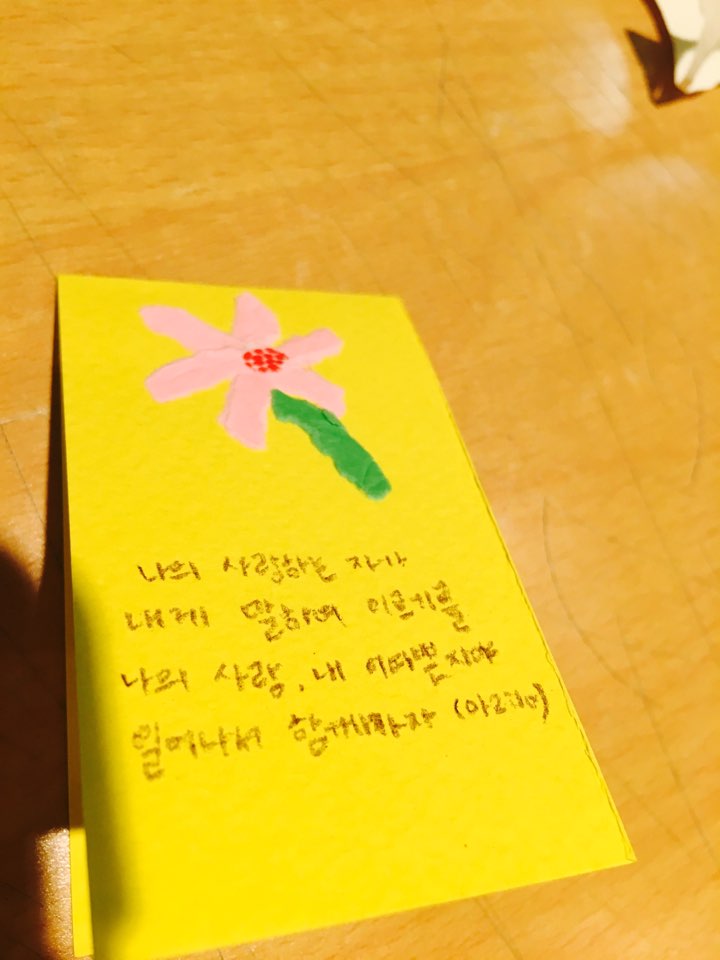 나의 사랑하는 자가
내게 말하여 이르기를
나의 사랑, 내 어여쁜 자야
일어나서 함께가자 (아2:10)